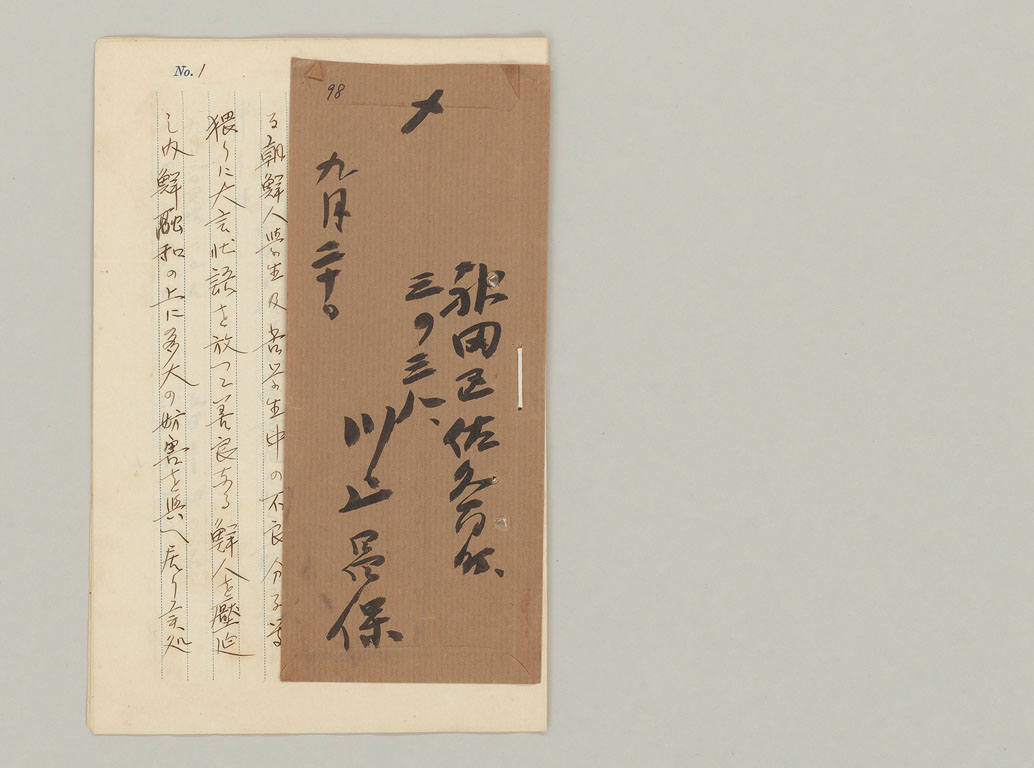 No. 1
98
〆
九月二十日
神田区佐久間町
三ノ三八、
川上昌保
る朝鮮人学生及苦学生中の不良分子等
猥りに大言壮語を放つて善良なる鮮人を壓迫
し内鮮融和の上に多大の妨害を與へ居り候処